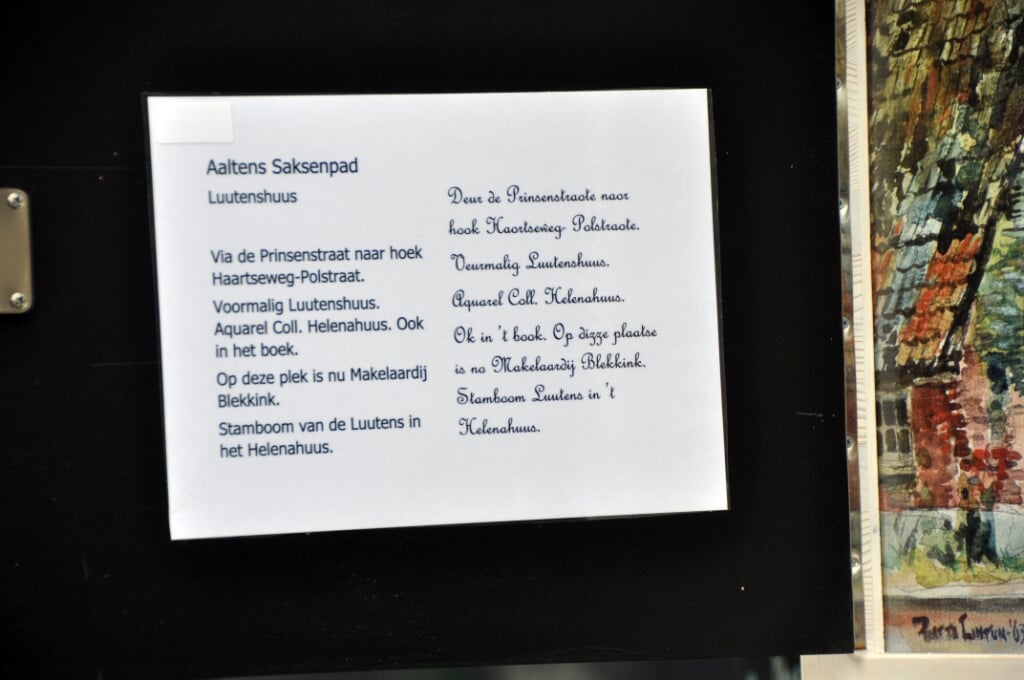 Aaltens Saksenpad
Luutenshuus
Via de Prinsenstraat naar hoek
Haartseweg-Polstraat.
Voormalig Luutenshuus.
Aquarel Coll. Helenahuus. Ook
in het boek.
Op deze plek is nu Makelaardij
Blekkink.
Stamboom van de Luutens in
het Helenahuus.
Deur de Prinsenstraote naor
hook Haortseweg- Polstraote.
Veurmalig Luutenshuus.
Aquarel Coll. Helenahuus.
Ok in 't book. Op dizze plaatse
is no Makelaardij Blekkink.
Stamboom Luutens in 't
Helenahuus.